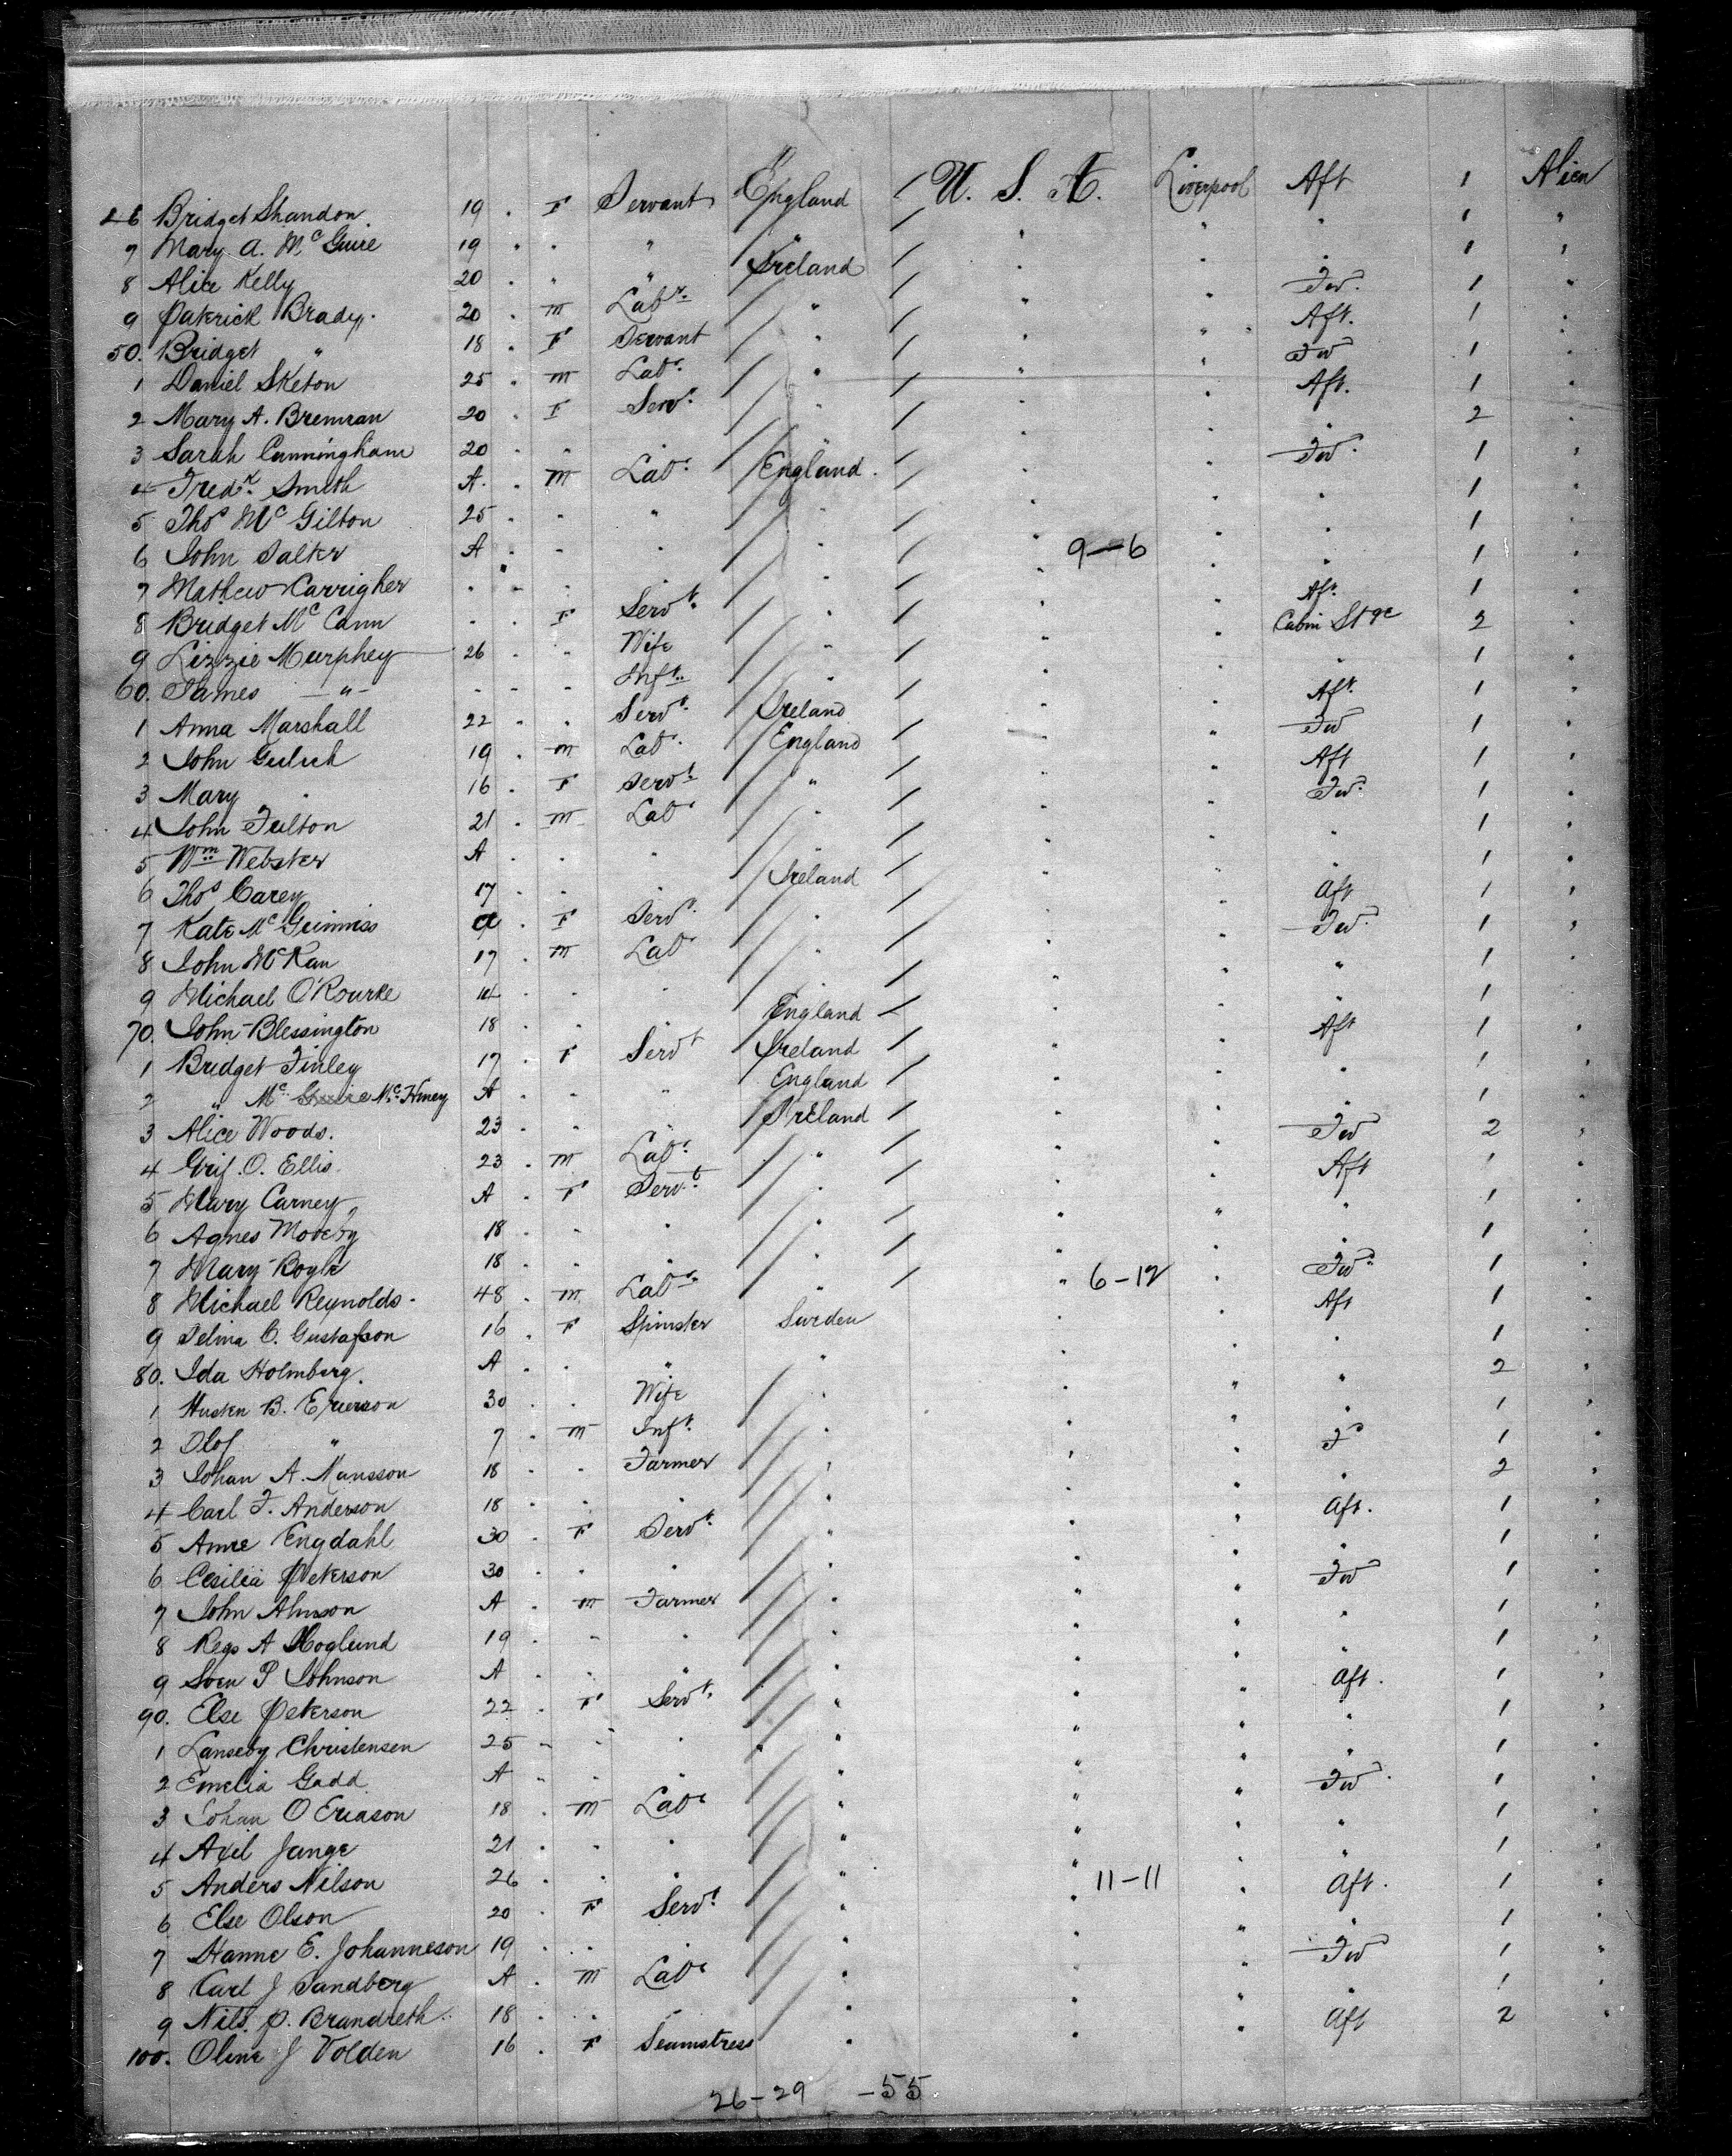 46 Bridget Shandon 19 . F Servant England / U. S. A. Liverpool Aft 1 Alien
7 Mary A. McGuire 19 . . " " / " " " 1 "
8 Alice Kelly 20 . . " Ireland / " " " 1 "
9 Patrick Brady. 20 . m Labr. / " / " " Fw. 1 "
50. Bridget " 18 . F Servant / " / " " Aft. 1 "
1 Daniel Sketon 25 . m Labr / " / " " Fw 1 "
2 Mary A. Brennan 20 . F Servt / " / " " Aft. 1 "
3 Sarah Cunningham 20 . . " / " / " " " 2 "
4 Fredk. Smith A. . m Labr / England / " " Fw. 1 "
5 Thos McGilton 25 . . " / " / " " " 1 "
6 John Salter A . . " / " / " 9-6 " " 1 "
7 Mathew Carrigher " . . " / " / " " " 1 "
8 Bridget McCann " . F Servt. / " / " " Aft. 1 "
9 Lizzie Murphey 26 . . Wife / " / " " Cabin Stge 2 "
60. James " - - - Inft. / " / " " " 1 "
1 Anna Marshall 22 . . Servt. / Ireland / " " Aft. 1 "
2 John Gulich 19 . m Labr. / England / " " Fw 1 "
3 Mary " 16 . F Servt. / " / " " Aft 1 "
4 John Fulton 21 . m Labr / " / " " Fw. 1 "
5 Wm. Webster A . . " / " / " " " 1 "
6 Thos Carey 17 . . " / Ireland / " " " 1 "
7 Kate McGuinniss a . F Servt. / " / " " Aft 1 "
8 John McKan 17 . m Labr / " / " " Fw. 1 "
9 Michael O'Rourke 14 . . " / " / " " " 1 "
70. John Blessington 18 . . " England / " " " 1 "
1 Bridget Finley 17 . F Servt Ireland / " " Aft 1 "
2 " Mc McHmey A . . " England / " " " 1 "
3 Alice Woods. 23 . . " Ireland / " " " 1 "
4 Grif. O. Ellis 23 . m Labr. / " / " " Fw 2 "
5 Mary Carney A . F Servt / " / " " Aft 1 "
6 Agnes 18 . . " / " / " " " 1 "
7 Mary Boyle 18 . . " / " / " " " 1 "
8 Michael Reynolds. 48 . m Labr. / " / " 6-12 " Fw. 1 "
9 Selma C. Gustafson 16 . F Spinster Sweden " " Aft 1 "
80. Ida Holmberg. A . . " " " " " 1 "
1 B. Ericson 30 . . Wife / " " " " 2 "
2 Olof " 7 . m Inft. / " " " " 1 "
3 Johan A. Mansson 18 . . Farmer / " " " F" 1 "
4 Carl F. Anderson 18 . . " / " " " " 2 "
5 Anne Engdahl 30 . F Servt. / " " " Aft. 1 "
6 Cesilia Peterson 30 . . " / " " " " 1 "
7 John A . m Farmer / " " " Fw 1 "
8 A Hoglund 19 . . " / " " " " 1 "
9 Sven P Johnson A . . " / " " " " 1 "
90. Else Peterson 22 . F Servt. / " " " Aft. 1 "
1 Christensen 25 . . " / " " " " 1 "
2 Emelia Gadd A . . " / " " " " 1 "
3 Johan O Ericason 18 . m Labr / " " " Fw. 1 "
4 Axel Jange 21 . . " / " " " " 1 "
5 Anders Nilson 26 . . " / " " 11-11 " " 1 "
6 Else Olson 20 . F Servt / " " " Aft. 1 "
7 Hanne E. Johanneson 19 . . " / " " " " 1 "
8 Carl J Sandberg A . m Labr / " " " Fw 1 "
9 Nils. P. Brandreth. 18 . . " / " " " " 1 "
100. Oline J Volden 16 . F Seamstress " " " Aft 2 "
26-29 -55